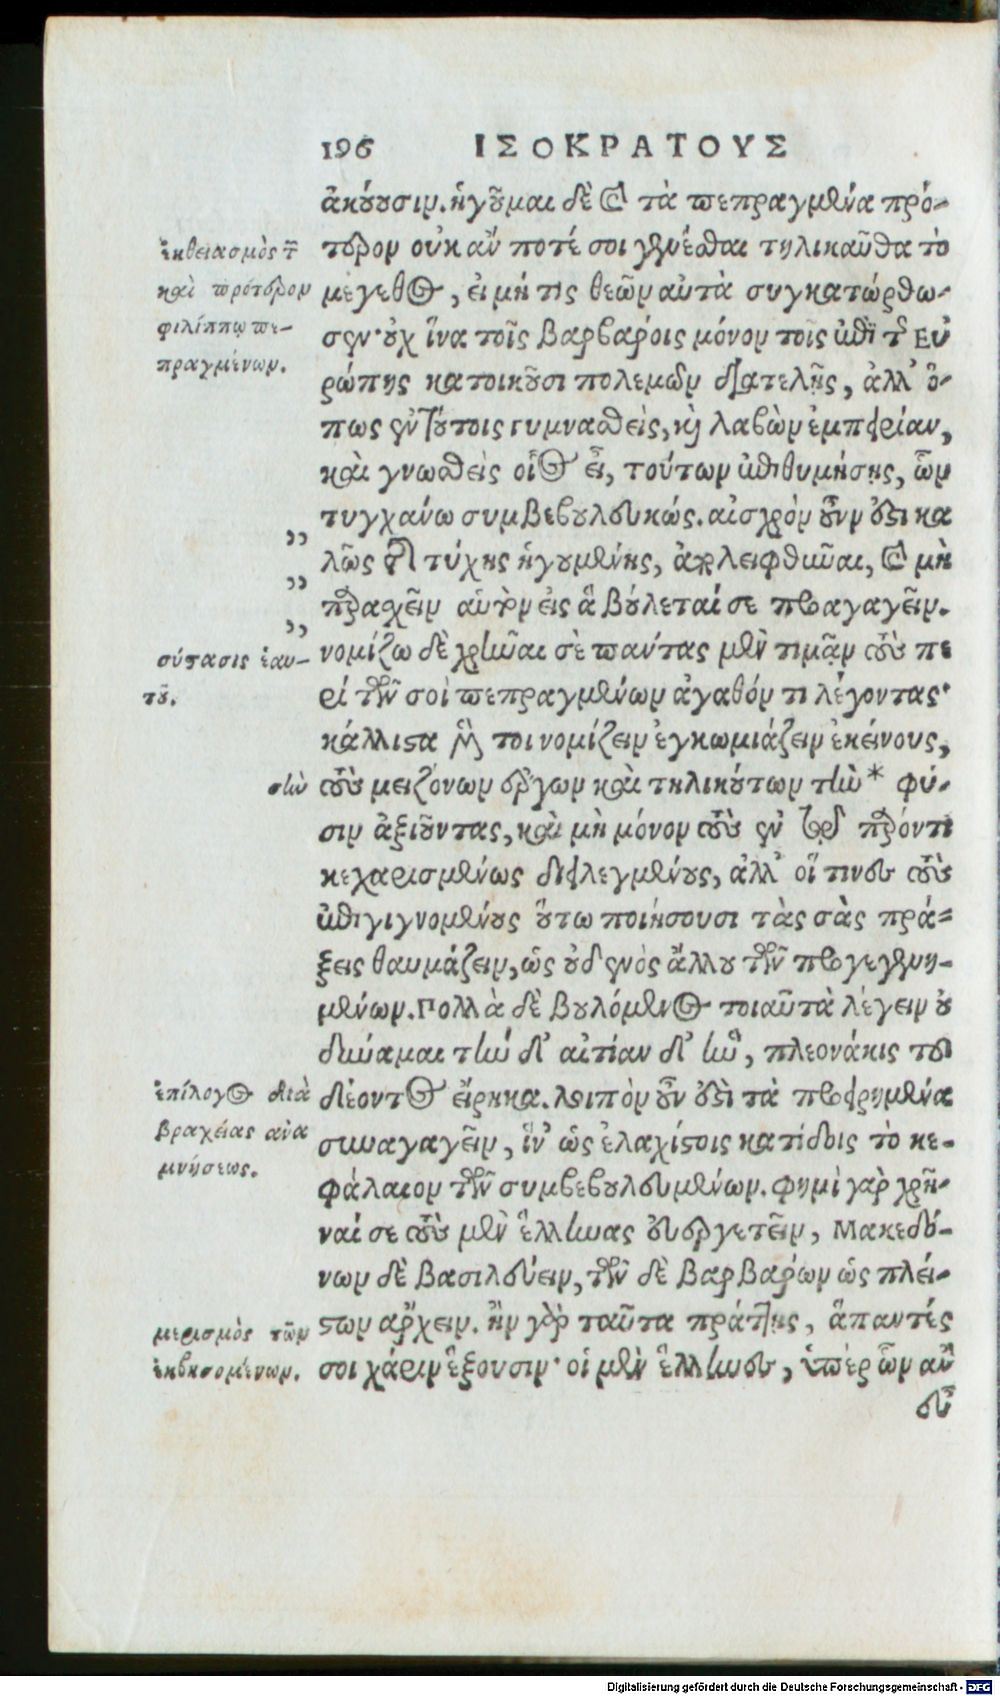 196 ΙΣΟΚΡΑΤΟΥΣ
ἀκούουσιν. ἡγοῦμαι δὲ καὶ τὰ πεπραγμένα πρό-
τερον οὐκ ἄν ποτέ σοι γενέσθαι τηλικαῦθα τὸ
μέγεθος, εἰ μή τις θεῶν αὐτὰ συγκατώρθω-
σεν· οὐχ ἵνα τοῖς βαρβάροις μόνον τοῖς ἐπὶ τῆς Εὐ
ρώπης κατοικοῦσι πολεμῶν διατελῇς, ἀλλ' ὅ-
πως ἐν τούτοις γυμνασθεὶς, καὶ λαβὼν ἐμπειρίαν,
καὶ γνωσθεὶς οἷος εἶ, τούτων ἐπιθυμήσῃς, ὧν
τυγχάνω συμβεβουλευκώς. αἰσχρὸν οὖν ἐστι κα
λῶς τῆς τύχης ἡγουμένης, ἀπολειφθῆναι, καὶ μὴ
παρασχεῖν αὑτὸν εἰς ἃ βούλεταί σε προαγαγεῖν.
νομίζω δὲ χρῆναι σὲ πάντας μὲν τιμᾷν τοὺς πε
ρὶ τῶν σοὶ πεπραγμένων ἀγαθόν τι λέγοντας·
κάλλιστα μέν τοι νομίζειν ἐγκωμιάζειν ἐκείνους,
τοὺς μειζόνων ἔργων καὶ τηλικούτων τὴν* φύ-
σιν ἀξιοῦντας, καὶ μὴ μόνον τοὺς ἐν τῷ παρόντι
κεχαρισμένως διειλεγμένους, ἀλλ' οἵ τινες τοὺς
ἐπιγιγνομένους οὕτω ποιήσουσι τὰς σὰς πρά-
ξεις θαυμάζειν, ὡς οὐδενὸς ἄλλου τῶν προγεγενη-
μένων. Πολλὰ δὲ βουλόμενος τοιαῦτα λέγειν οὐ
δύναμαι τὴν δ' αἰτίαν δι' ἣν, πλεονάκις τοῦ
δέοντος εἴρηκα. λοιπὸν οὖν ἐστὶ τὰ προειρημένα
συναγαγεῖν, ἵν' ὡς ἐλαχίστοις κατίδοις τὸ κε-
φάλαιον τῶν συμβεβουλευμένων. φημὶ γὰρ χρῆ-
ναί σε τοὺς μὲν ἕλληνας εὐεργετεῖν, Μακεδό-
νων δὲ βασιλεύειν, τῶν δὲ βαρβάρων ὡς πλεί-
στων ἄρχειν. ἢν γὰρ ταῦτα πράττῃς, ἅπαντές
σοι χάριν ἕξουσιν· οἱ μὲν ἕλληνες, ὑπὲρ ὧν ἂν
εὖ
ἐκθειασμὸς τῶν
καὶ πρότερον
φιλίππῳ πε-
πραγμένων.
,,
,,
,,
σύστασις ἑαυ-
τοῦ.
σὴν
ἐπίλογος διὰ
βραχείας ἀνα
μνήσεως.
μερισμὸς τῶν
ἐκβησομένων.
Digitalisierung gefördert durch die Deutsche Forschungsgemeinschaft - DFG